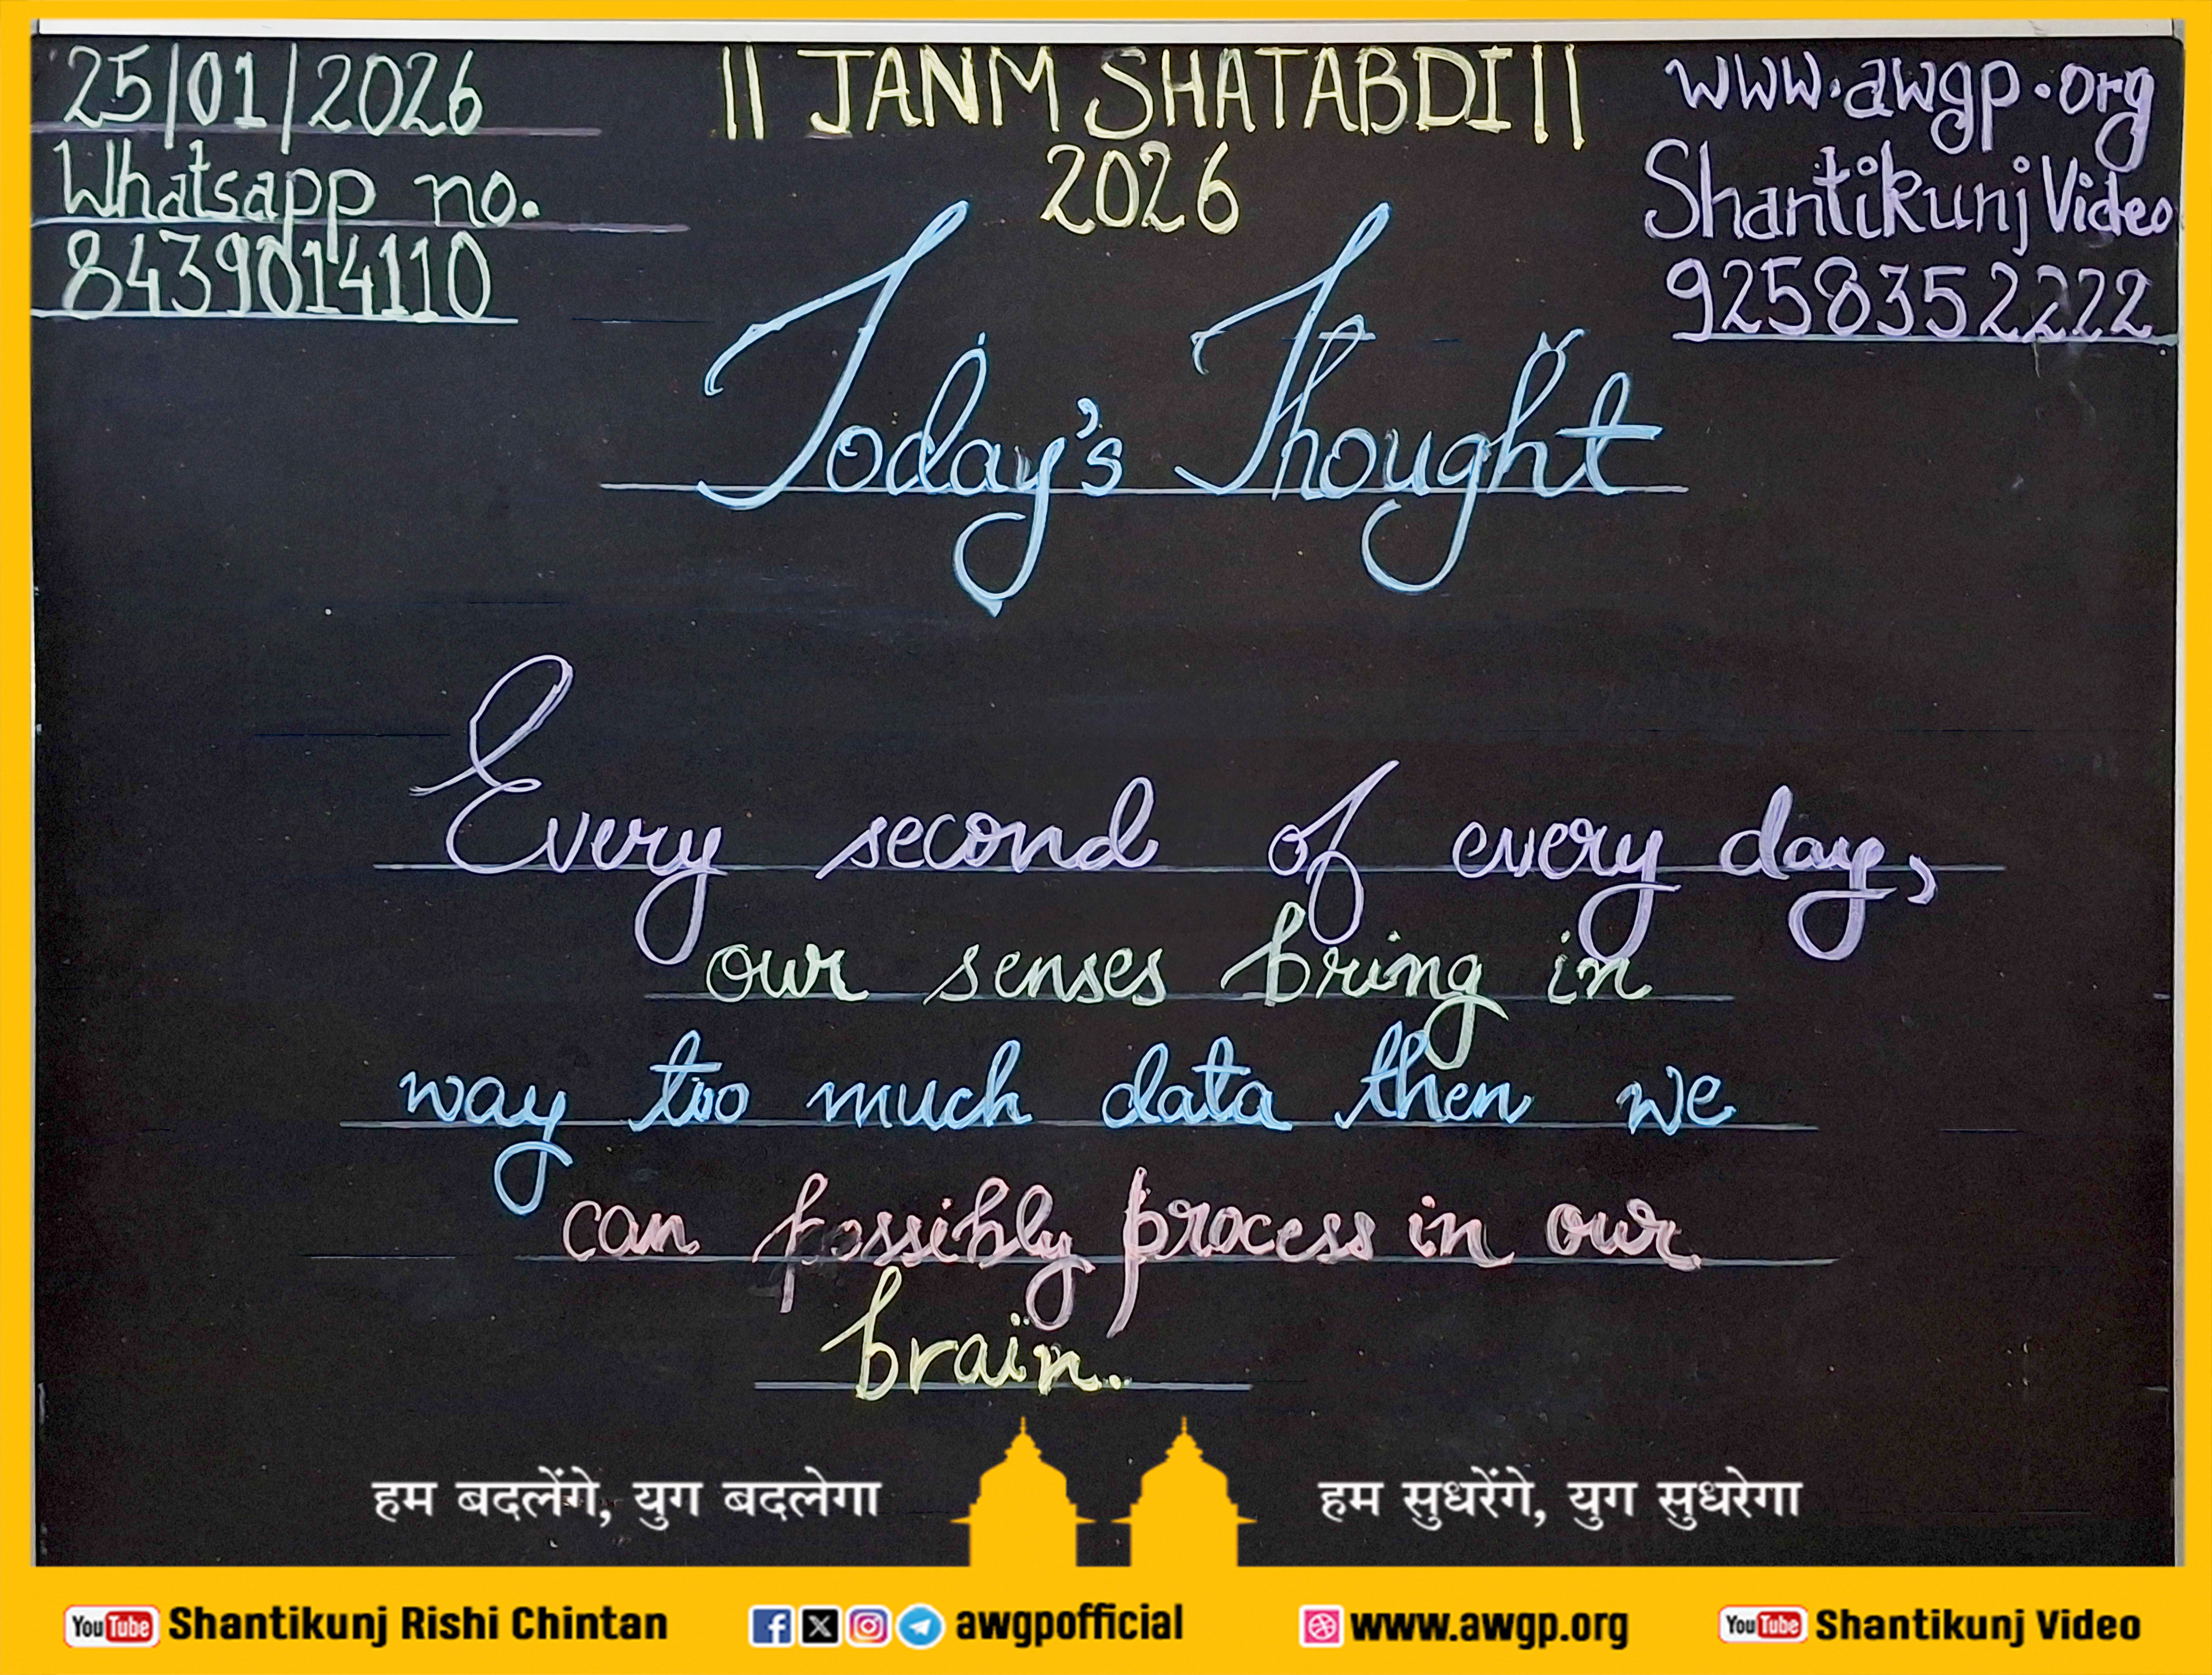 25/01/2026
Whatsapp no.
8439014110
|| JANM SHATABDI ||
2026
www.awgp.org
Shantikunj Video
9258352222
Today's Thought
Every second of every day,
our senses bring in
way too much data then we
can possibly process in our
brain.
हम बदलेंगे, युग बदलेगा
हम सुधरेंगे, युग सुधरेगा
YouTube Shantikunj Rishi Chintan
awgpofficial
www.awgp.org
YouTube Shantikunj Video